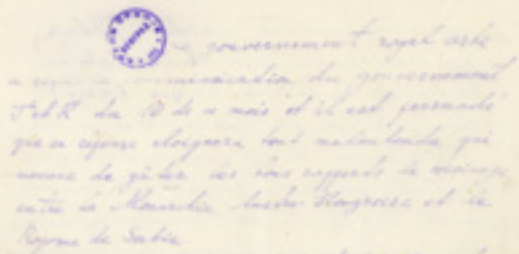 gouvernement royal serbe
a communication du gouvernement
I et R du 10 de ce mois et il est persuadé
que sa réponse éloignera tout malentendu qui
menace de gâter les bons rapports de voisinage
entre la Monarchie Austro-Hongroise et le
Royaume de Serbie